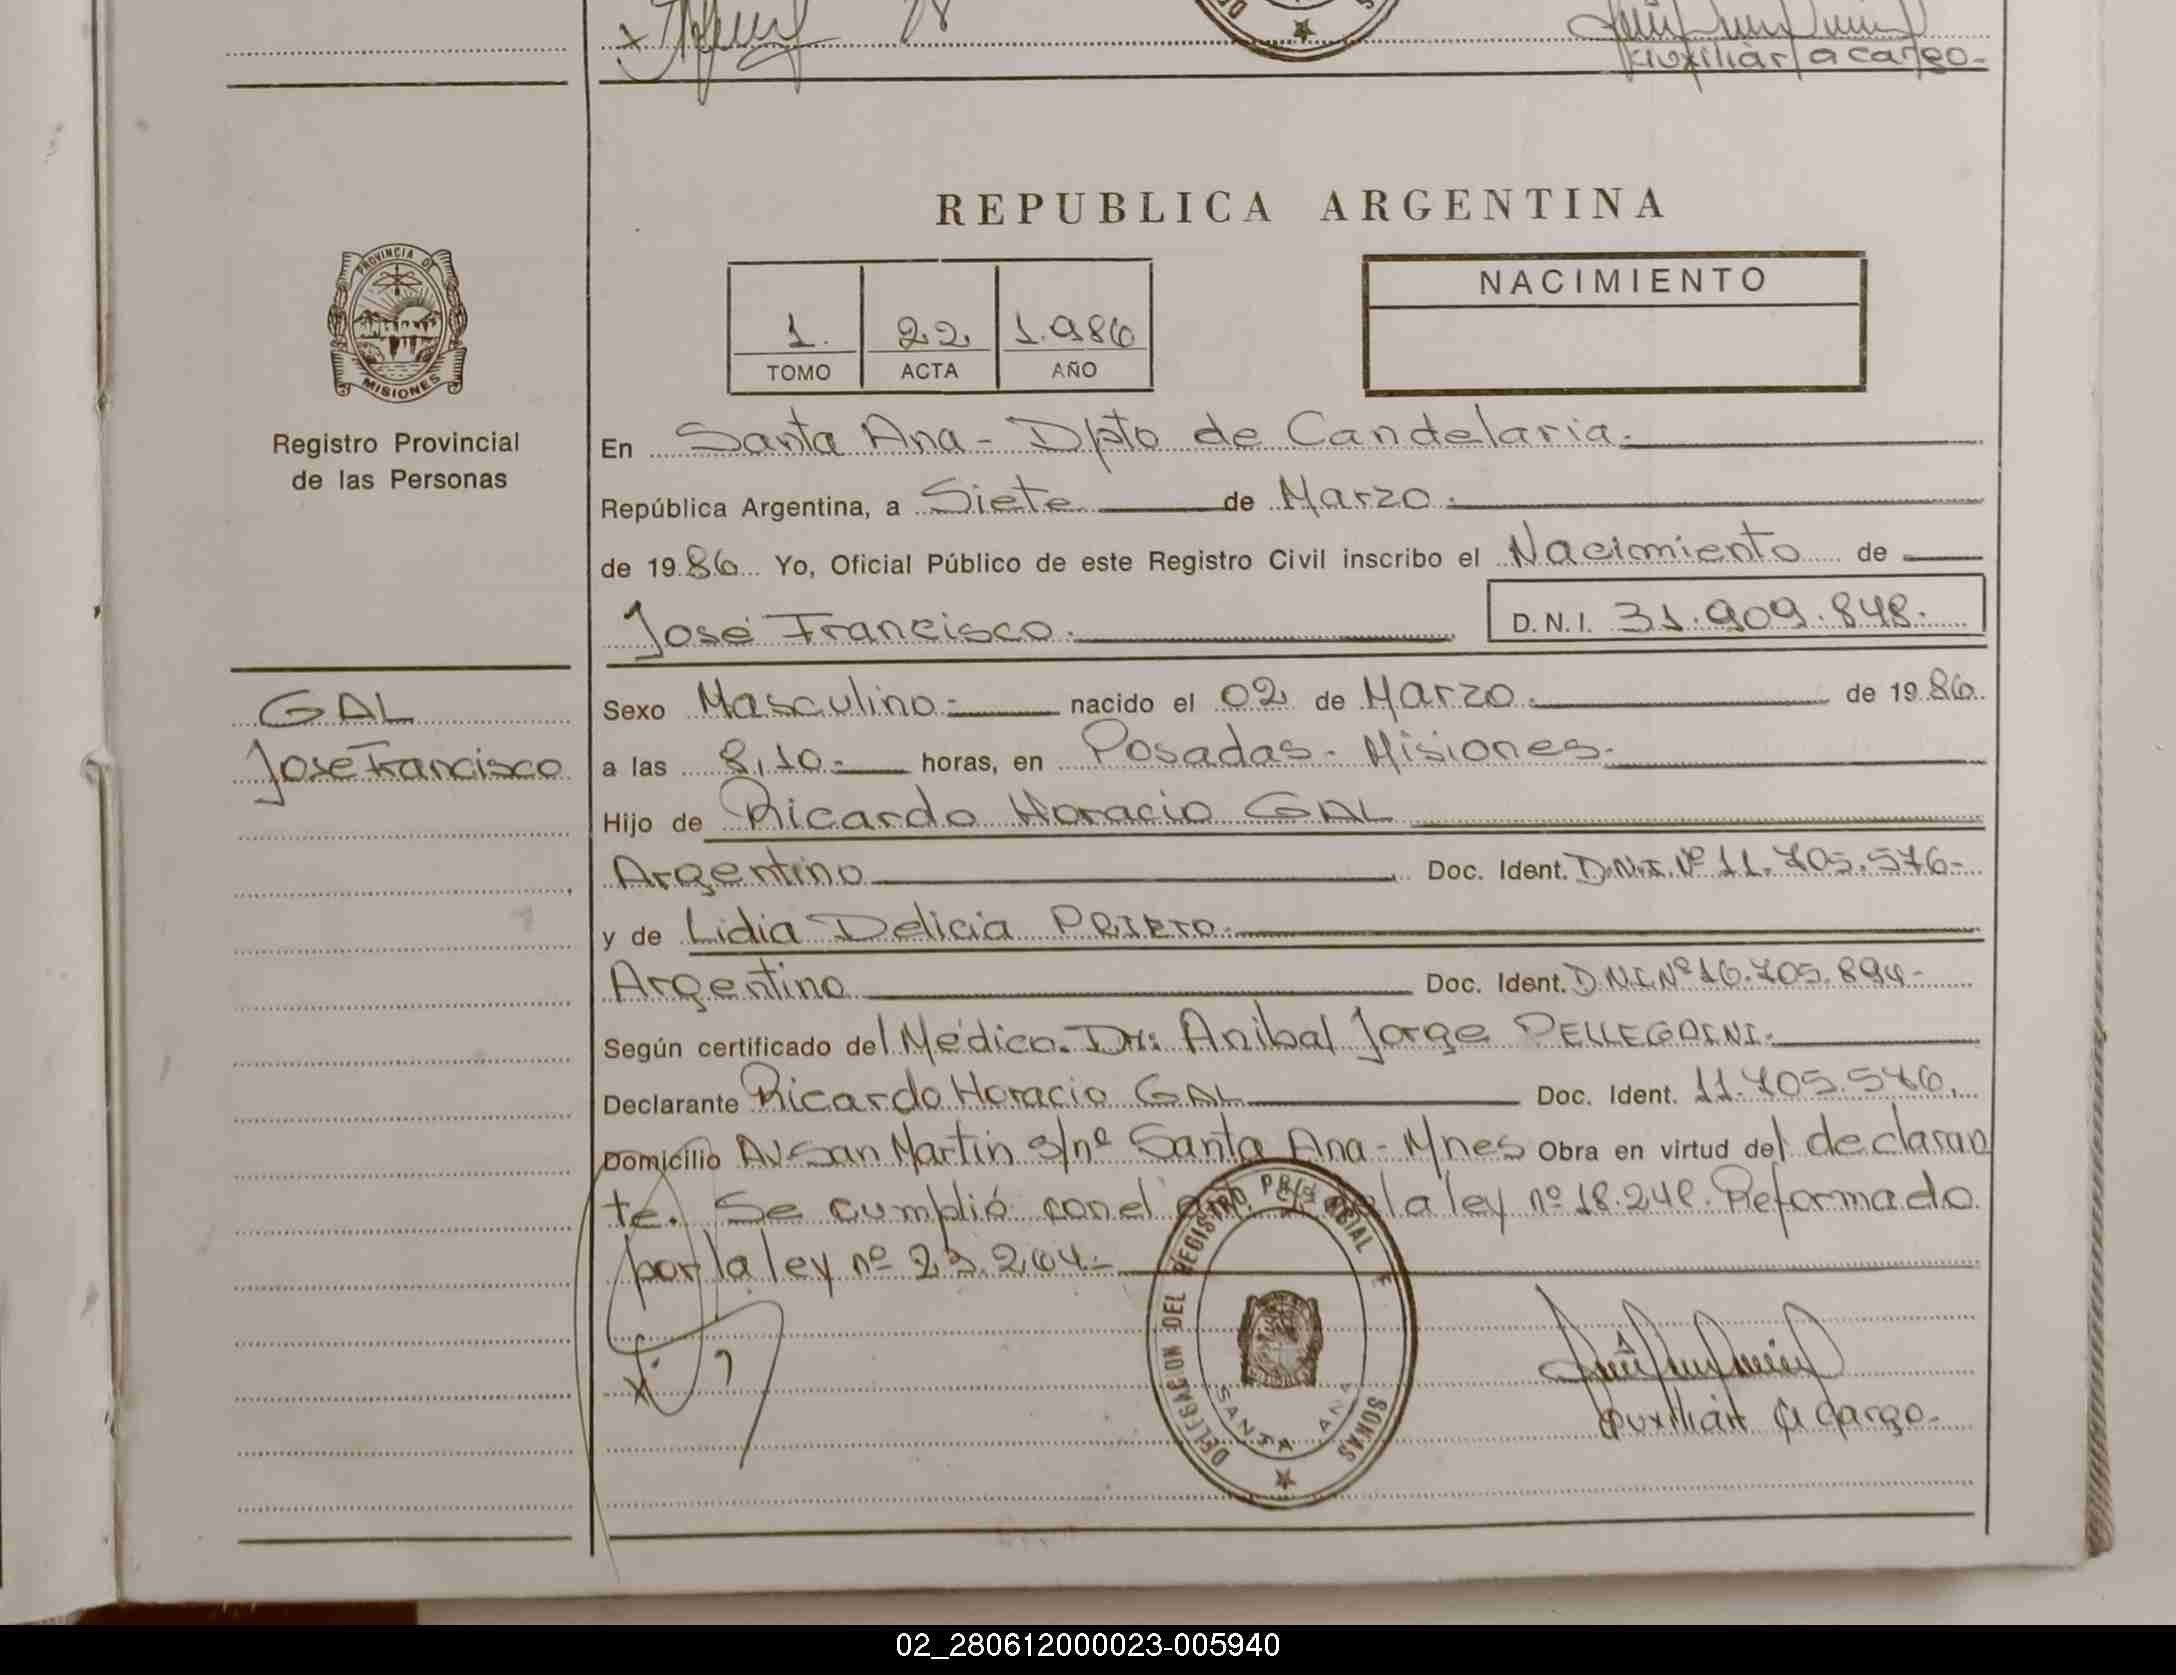 Auxiliar a cargo-
REPUBLICA ARGENTINA
PROVINCIA DE
MISIONES
Registro Provincial
de las Personas
1. 22 1.986
TOMO ACTA AÑO
NACIMIENTO
En Santa Ana - Dpto de Candelaria.
República Argentina, a Siete de Marzo.
de 19 86 Yo, Oficial Público de este Registro Civil inscribo el Nacimiento de
José Francisco. D.N.I. 31.909.848.
GAL
José Francisco
Sexo Masculino.- nacido el 02 de Marzo. de 19 86.
a las 8,10.- horas, en Posadas - Misiones.
Hijo de Ricardo Horacio GAL
Argentino Doc. Ident. D.N.I. Nº 11.705.576-
y de Lidia Delicia PRIETO.
Argentina Doc. Ident. D.N.I. Nº 16.705.894-
Según certificado del Médico. Dr: Anibal Jorge PELLEGRINI.
Declarante Ricardo Horacio GAL Doc. Ident. 11.705.576.
Domicilio Av San Martín s/nº Santa Ana - Mnes Obra en virtud del declaran
te. Se cumplió con el de la ley nº 18.248. Reformado
por la ley nº 23.264.-
DELEGACION DEL REGISTRO PROVINCIAL DE PERSONAS
SANTA ANA
Auxiliar a cargo-
02_280612000023-005940